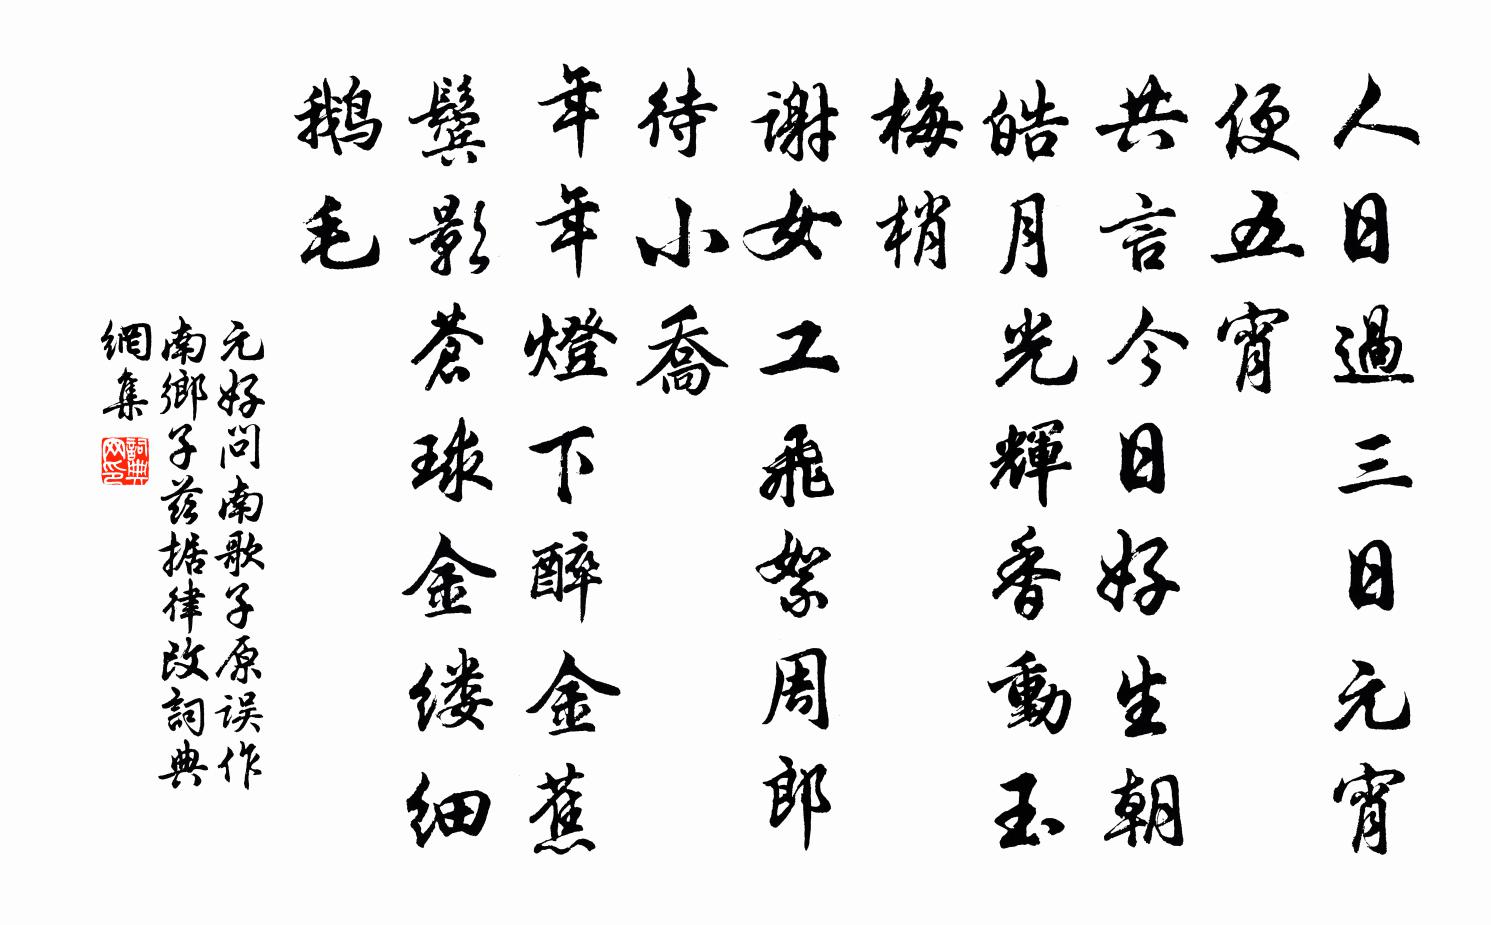 人日過三日元宵
便五宵
共言今日好生朝
皓月光輝香動玉
梅梢
谢女工飛絮周郎
待小喬
年年燈下醉金蕉
鬓影蒼球金缕细
鹅毛
元好问南歌子原误作
南鄉子兹据律改詞典
網集
詞典
网印